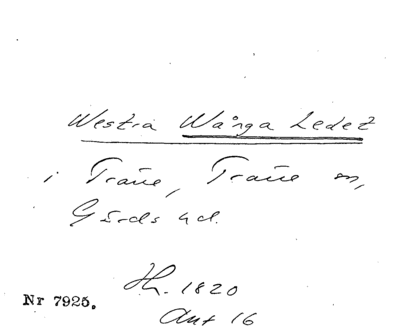 Westra Wånga Ledet
i Trane, Trane sn,
Gärds hd.
Hh. 1820
Ant 16
Nr 7925.